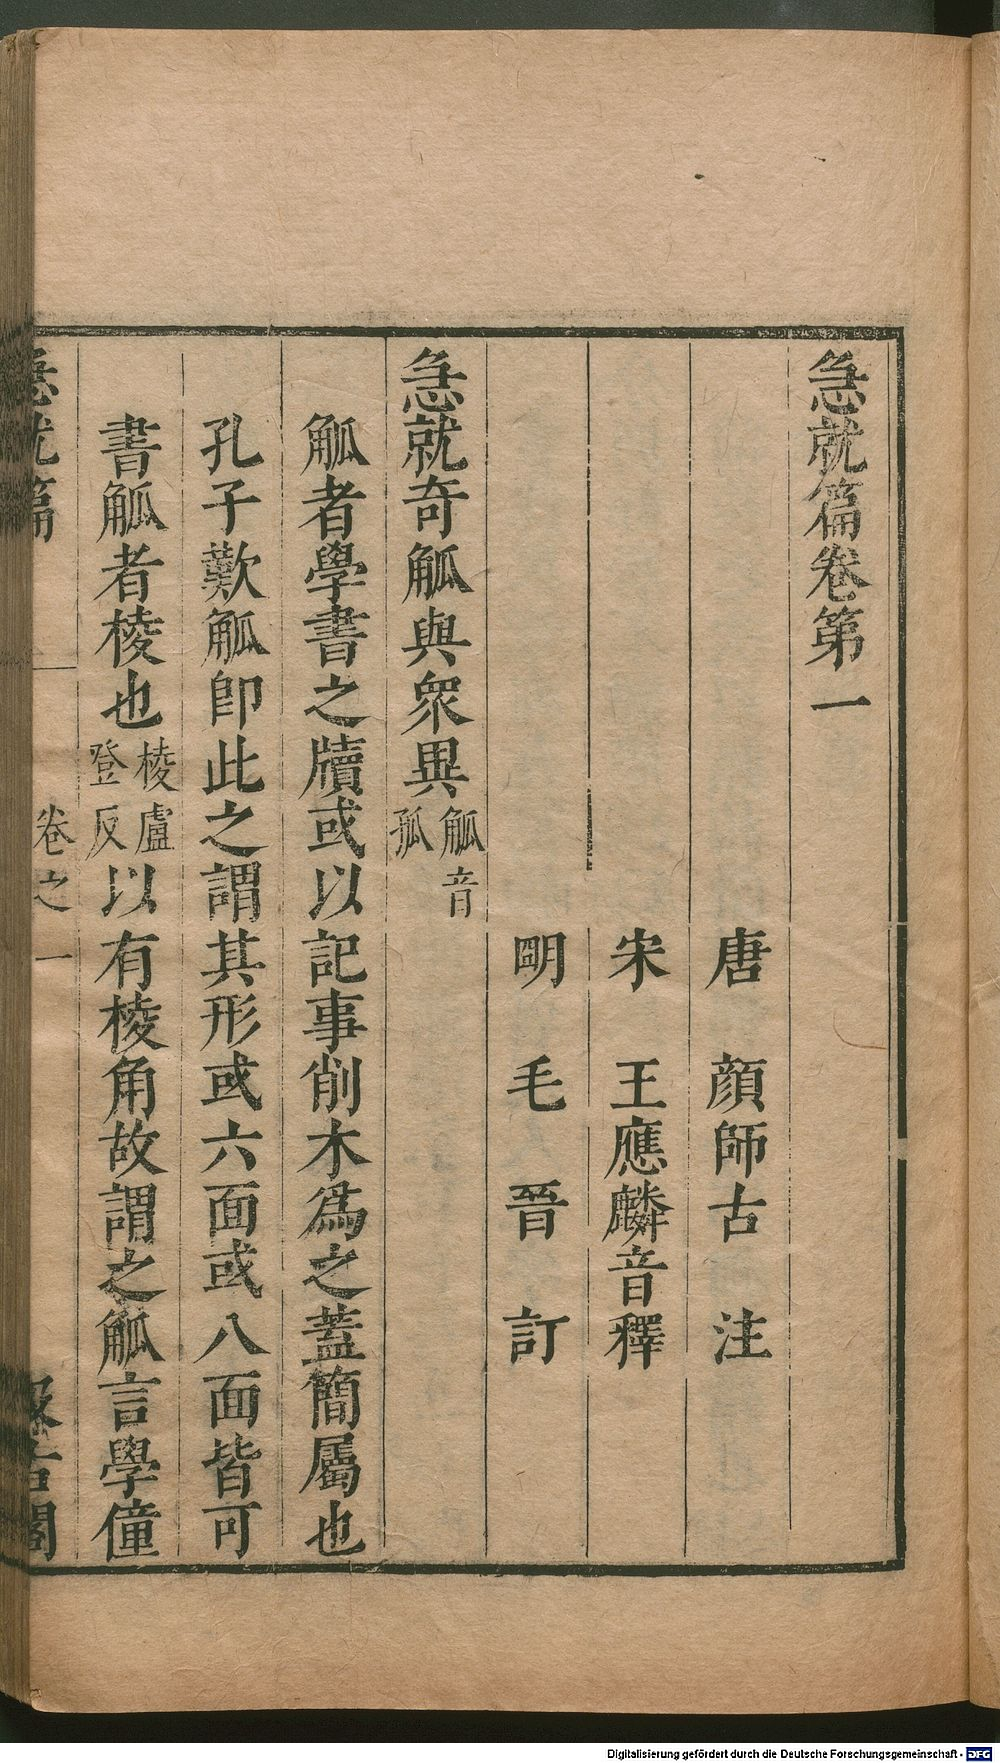 急就篇卷第一
唐 顔師古 注
宋 王應麟音釋
明 毛 晉 訂
急就奇觚與眾異觚音孤
觚者學書之牘或以記事削木爲之蓋簡屬也
孔子歎觚卽此之謂其形或六面或八面皆可
書觚者棱也棱盧登反以有棱角故謂之觚言學僮
急就篇 卷之一 汲古閣
Digitalisierung gefördert durch die Deutsche Forschungsgemeinschaft - DFG